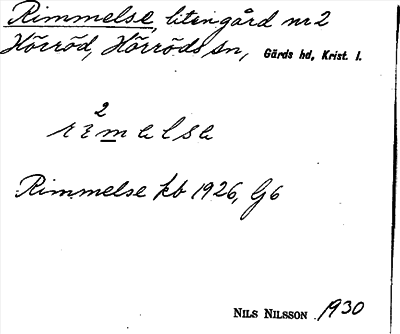 Rimmelse, liten gård nr 2
Hörröd, Hörröds sn, Gärds hd, Krist. l.
2
r i m e l s e
Rimmelse kb 1926, G6
NILS NILSSON 1930